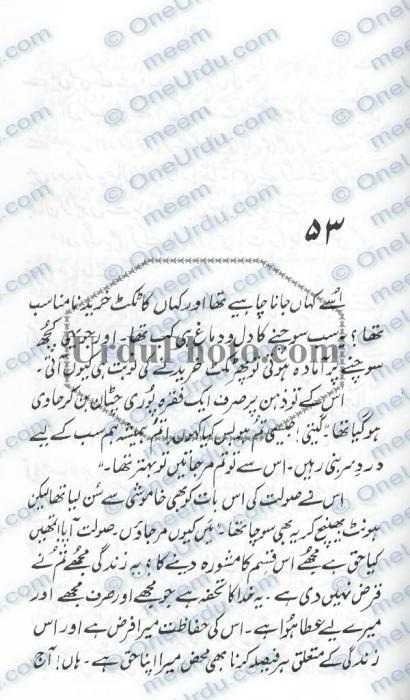 ۵۳
اُسے کہاں جانا چاہیے تھا اور کہاں کا ٹکٹ خریدنا مناسب
تھا؟ یہ سب سوچنے کا دل و دماغ ہی کب تھا۔ اور جب ہی کچھ
سوچنے پر آمادہ نہ ہوئی تو پھر ٹکٹ خریدنے کی نوبت ہی کیوں آتی۔
اس کے تو ذہن پر صرف ایک فقرہ پوری چٹان بن کر حاوی
ہو گیا تھا۔ "گیتی! تم ہمیشہ ہم سب کے لیے
دردِ سر بنی رہیں۔ اس سے تو تم مر جاتیں تو بہتر تھا۔"
اس نے صولت کی اس بات کو بھی خاموشی سے سُن لیا تھا لیکن
ہونٹ بھینچ کر یہ بھی سوچا تھا۔ "میں کیوں مر جاؤں۔ صولت آپا! تمھیں
کیا حق ہے مجھے اس قسم کا مشورہ دینے کا؟ یہ زندگی مجھے تم نے
قرض نہیں دی ہے۔ یہ خدا کا تحفہ ہے جو مجھے اور صرف مجھے اور
میرے لیے عطا ہُوا ہے۔ اس کی حفاظت میرا فرض ہے اور اس
زندگی کے متعلق ہر فیصلہ کرنا بھی محض میرا اپنا حق ہے۔ ہاں! آج
© OneUrdu.com
meem
UrduPhoto.com